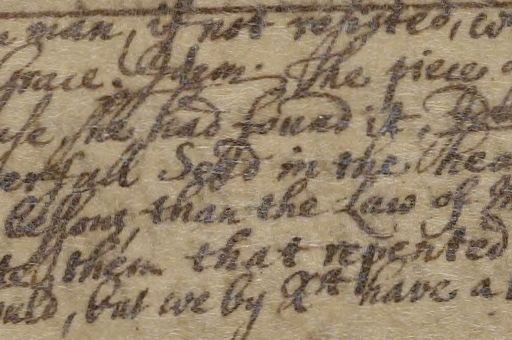 man, if not resisted, co
Grace. Idem. The piece
use, she had found it.
erfull Seed in the hea
lessons, than the Law of M
ted them that repented
ould, but we by Xt have a